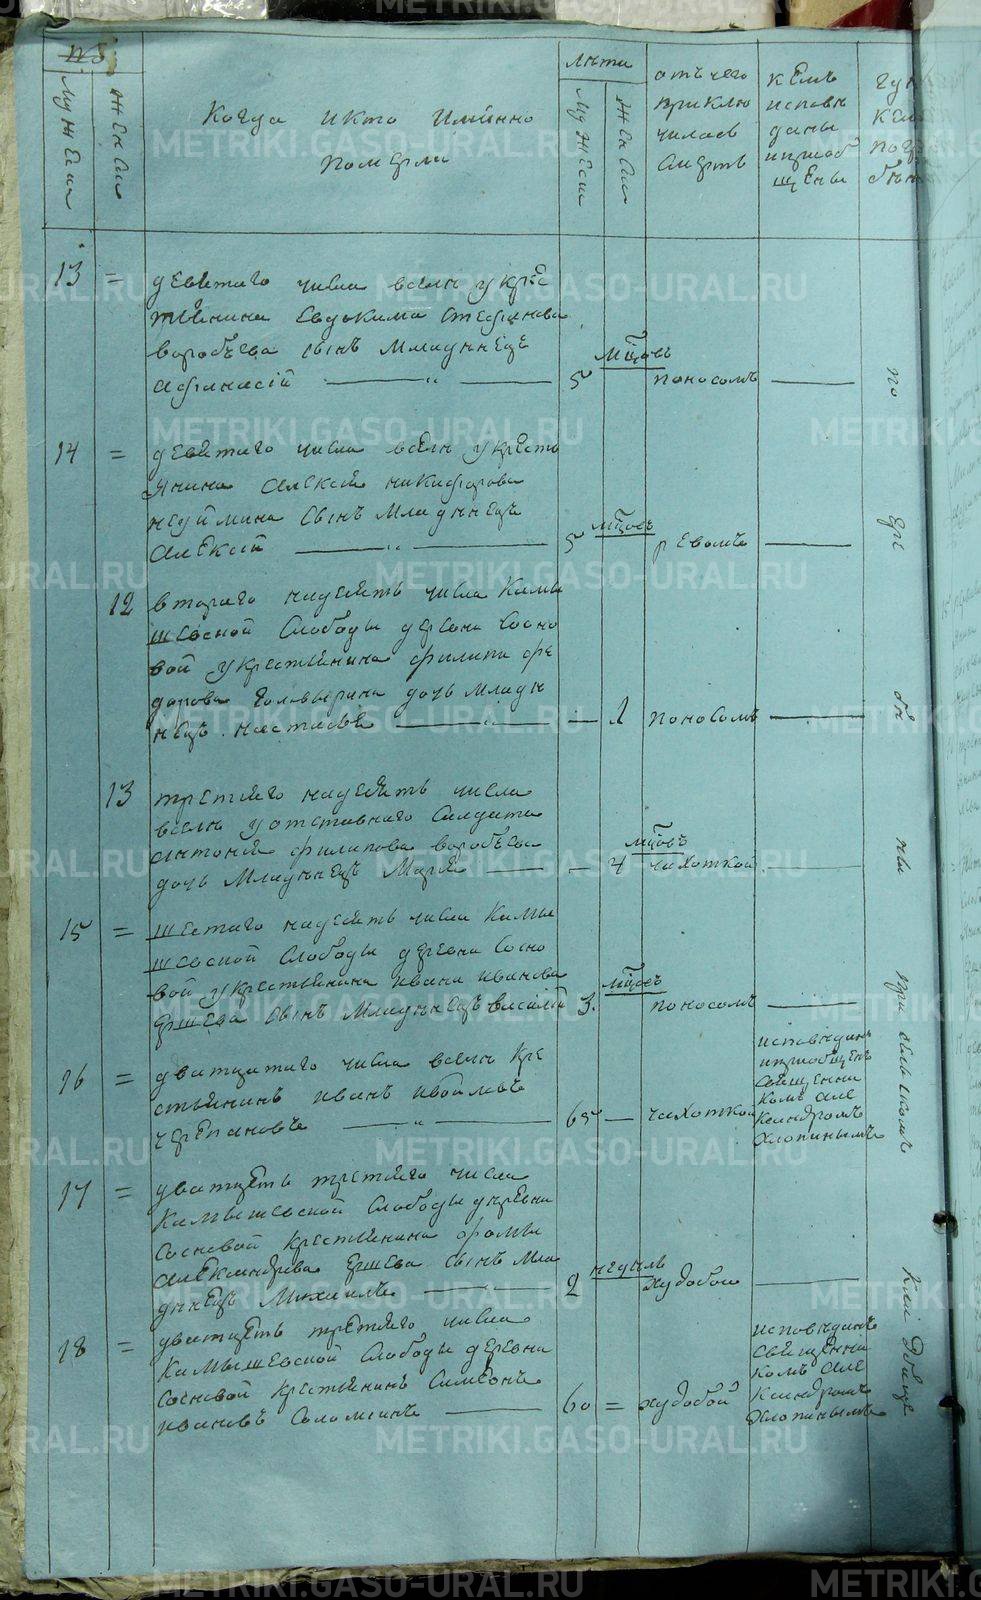 №
мужеска
женска
Когда и кто имянно
померли
лѣта
мужеска
женска
отъ чего
приклю
чилась
смерть
кѣмъ
исповѣ
даны
и приоб
щены
кѣмъ
13 =
девятаго числа в селѣ у крес
тьянина Евдокима Стефанова
воробьева сынъ младѣнецъ
афанасiй
5
мцовъ
поносомъ
14 =
девятаго числа в селѣ у кресть
янина Алексѣя никифорова
неуймина сынъ младѣнецъ
Алексiй
5
мцовъ
ревомъ
12
втораго надесять числа Камы
шевской Слободы деревни Сосно
вой у крестьянина филипа фе
дорова дочь младѣ
нецъ настасья
1
поносомъ
13
третьяго надесять числа
в селѣ у отставнаго Салдата
антонiя филипова воробьева
дочь младѣнецъ Марья
4
мцовъ
чахоткой
15 =
шестаго надесять числа Камы
шевской Слободы деревни Сосно
вой у крестьянина ивана иванова
Ершева сынъ младѣнецъ василiй
3
мцовъ
поносомъ
16 =
дватцатаго числа в селѣ кре
стьянинъ иванъ
черепановъ
65
чахоткой
исповѣданъ
и приобщенъ
священни
комъ але
ксандромъ
Хлопинымъ
17 =
дватцеть третьяго числа
Камышевской Слободы деревни
Сосновой крестьянина фомы
александрова Ершева сынъ мла
дѣнецъ Михаилъ
2
недѣль
худобою
18 =
дватцеть третьяго числа
Камышевской Слободы деревни
Сосновой крестьянинъ Симеонъ
ивановъ
60 =
худобой
исповѣданъ
священни
комъ але
ксандромъ
Хлопинымъ
по
гре
бѣ
ны
при
кла
дбище
METRIKI.GASO-URAL.RU